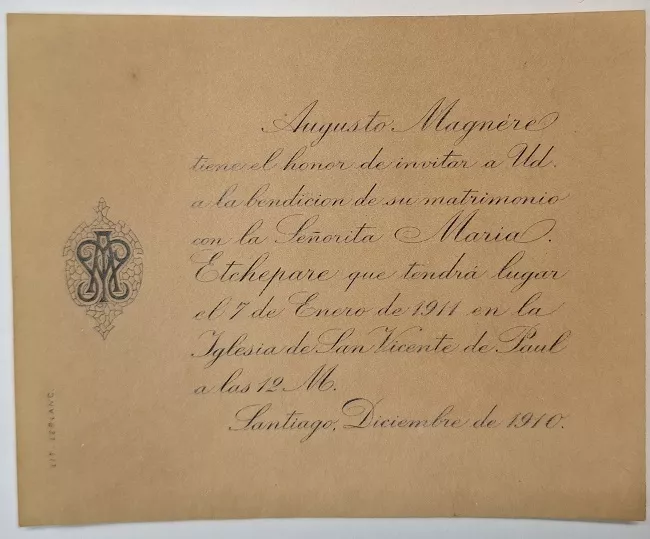 Augusto Magnére
tiene el honor de invitar a Ud.
a la bendicion de su matrimonio
con la Señorita Maria
Etchepare que tendrá lugar
el 7 de Enero de 1911 en la
Iglesia de San Vicente de Paul
a las 12 M.
Santiago, Diciembre de 1910.
LIT. LEBLANC